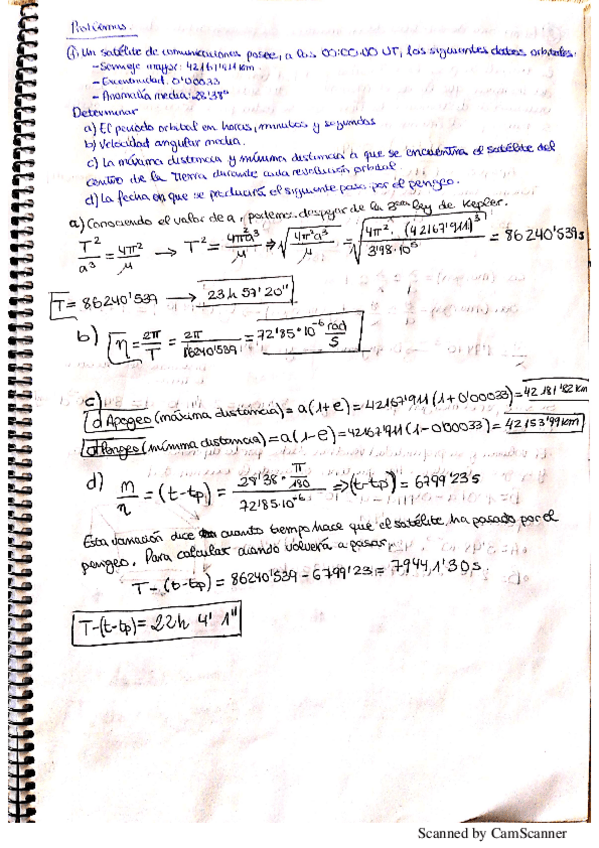 Problemas
1. Un satélite de comunicaciones posee, a las 00:00:00 UT, los siguientes datos orbitales:
- Semieje mayor: 42167'911 km
- Excentricidad: 0'00033
- Anomalía media: 28'38º
Determinar
a) El periodo orbital en horas, minutos y segundos
b) Velocidad angular media.
c) La máxima distancia y mínima distancia a que se encuentra el satélite del
centro de la Tierra durante cada revolución orbital.
d) La fecha en que se producirá el siguiente paso por el perigeo.
a) Conociendo el valor de a, podemos despejar de la 3ª ley de Kepler.
T²/a³ = 4π²/μ → T² = 4π²a³/μ → √(4π²a³/μ) = √(4π²·(42167'911)³/3'98·10⁵) = 86240'539s
T = 86240'539 → 23h 57' 20"
b) η = 2π/T = 2π/86240'539 = 72'85·10⁻⁶ rad/s
c)
d Apogeo (máxima distancia) = a(1+e) = 42167'911(1+0'00033) = 42181'82 km
d Perigeo (mínima distancia) = a(1-e) = 42167'911(1-0'00033) = 42153'99 km
d) m/η = (t-tp) = 28'38·π/180 / 72'85·10⁻⁶ ⇒ (t-tp) = 6799'23s
Esta variación dice cuanto tiempo hace que el satélite, ha pasado por el
perigeo. Para calcular cuando volverá a pasar,
T-(t-tp) = 86240'539 - 6799'23 = 79441'30s.
T-(t-tp) = 22h 4' 1"
Scanned by CamScanner